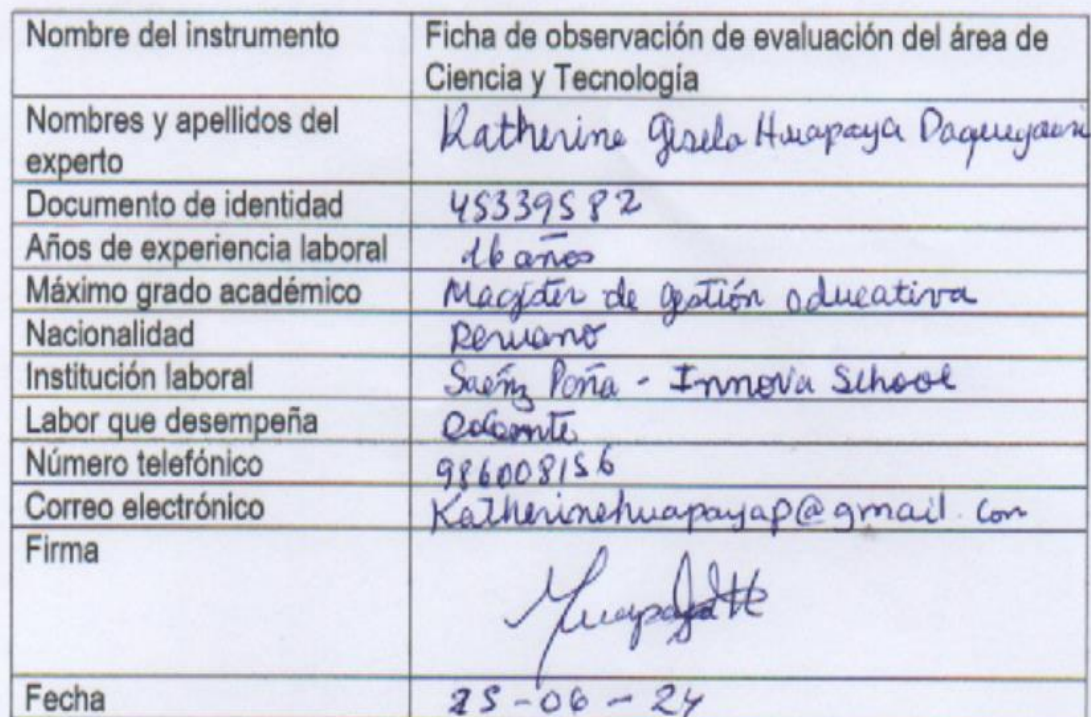 Nombre del instrumento Ficha de observación de evaluación del área de
Ciencia y Tecnología
Nombres y apellidos del Katherine Gisela Huapaya
experto
Documento de identidad 45339582
Años de experiencia laboral 16 años
Máximo grado académico Magister de gestión educativa
Nacionalidad Peruano
Institución laboral Saénz Peña - Innova School
Labor que desempeña Docente
Número telefónico 986008156
Correo electrónico Katherinehuapayap@gmail.com
Firma
Fecha 25-06-24